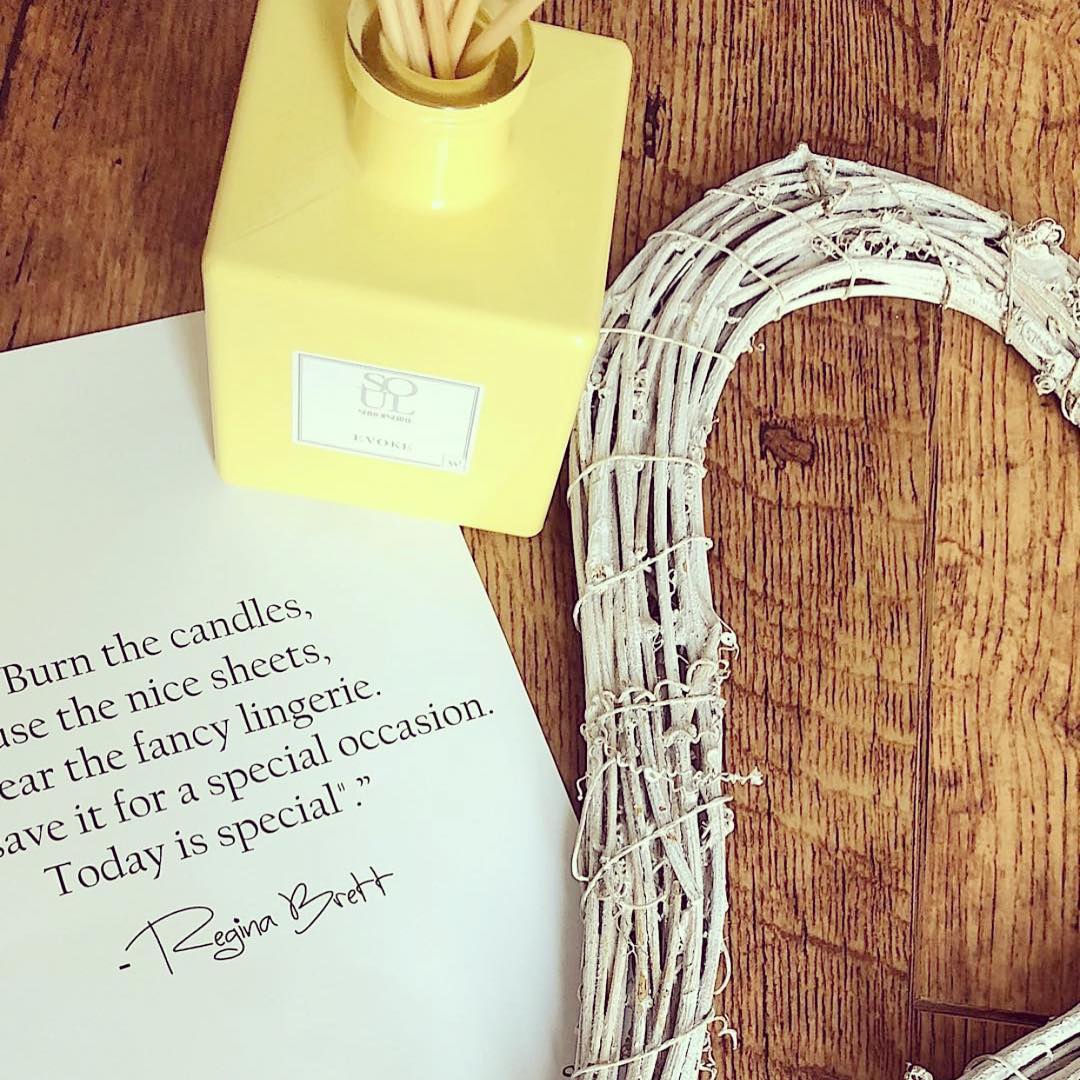 SO
UL
EVOKE
W
Burn the candles,
use the nice sheets,
ear the fancy lingerie.
save it for a special occasion.
Today is special" .”
- Regina Brett